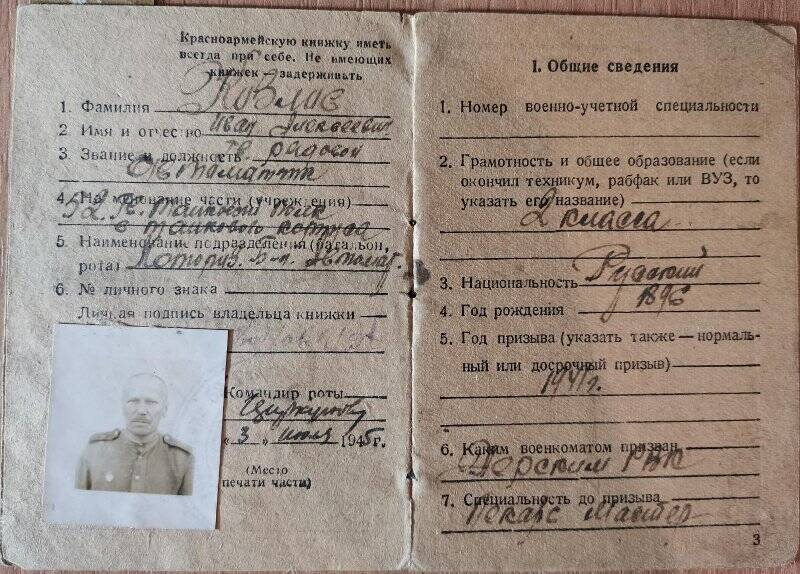 Красноармейскую книжку иметь
всегда при себе. Не имеющих
книжек — задерживать
1. Фамилия Козлов
2. Имя и отчество Иван Алексеевич
3. Звание и должность гв рядовой
Автоматчик
4. Наименование части (учреждения)
52 гв. танковый полк
6 танкового корпуса
5. Наименование подразделения (батальон,
рота) Моториз. б-н. Автомат.
6. № личного знака
Личная подпись владельца книжки
Командир роты
„ 3 „ июля 1945г.
(Место
печати части)
1. Общие сведения
1. Номер военно-учетной специальности
2. Грамотность и общее образование (если
окончил техникум, рабфак или ВУЗ, то
указать его название)
2 класса
3. Национальность Русский
4. Год рождения 1896
5. Год призыва (указать также — нормаль-
ный или досрочный призыв)
1941г.
6. Каким военкоматом призван
РВК
7. Специальность до призыва
Пекарь Мастер
3